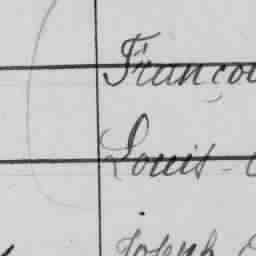 Françoi
Louis -
Joseph